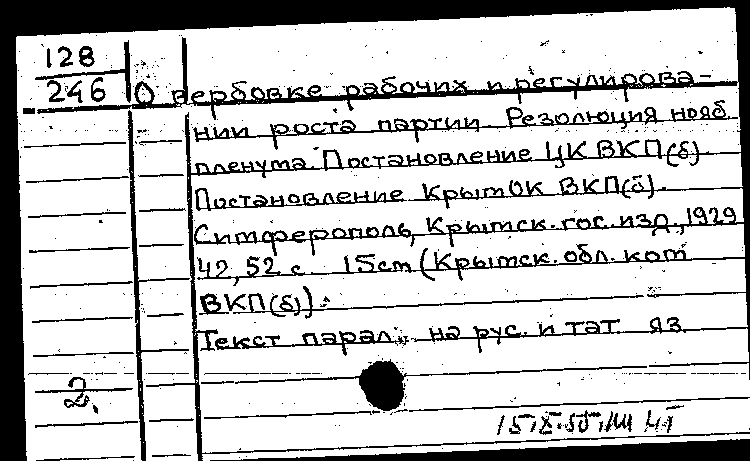 128
246 О вербовке рабочих и регулирова-
нии роста партии Резолюция нояб
пленума. Постановление ЦК ВКП(б).
Постановление КрымОК ВКП(б).
Симферополь, Крымск. гос. изд., 1929
42, 52 с. 15cm (Крымск. обл. ком
ВКП(б)).
Текст парал. на рус. и тат. яз.
2.